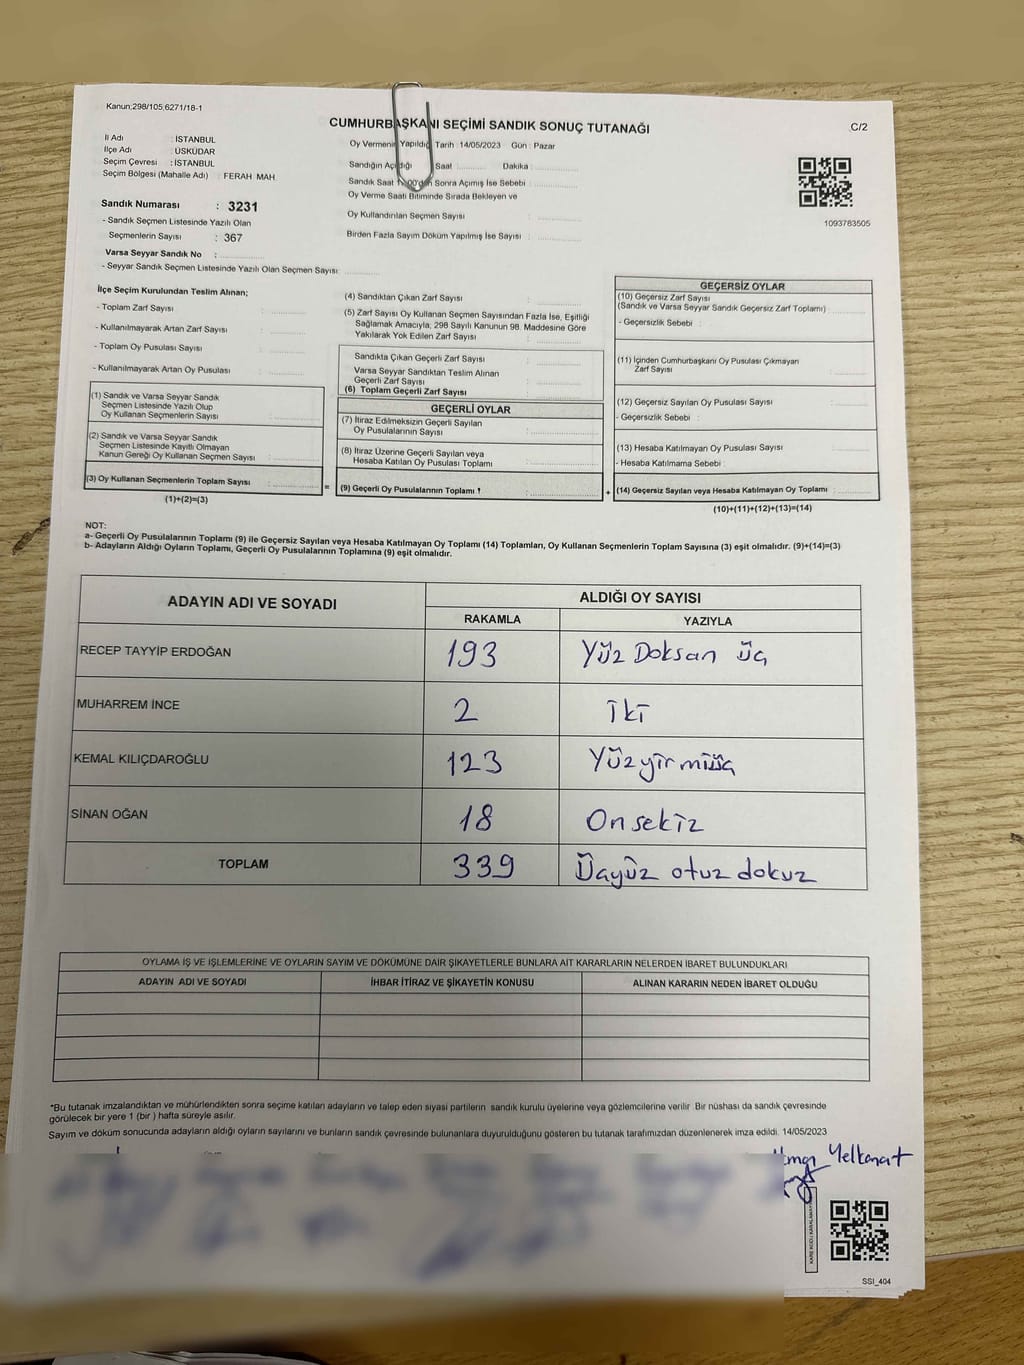 Kanun;298/105;6271/18-1
CUMHURBAŞKANI SEÇİMİ SANDIK SONUÇ TUTANAĞI
C/2
İl Adı : İSTANBUL
İlçe Adı : ÜSKÜDAR
Seçim Çevresi : İSTANBUL
Seçim Bölgesi (Mahalle Adı) : FERAH MAH.
Sandık Numarası : 3231
- Sandık Seçmen Listesinde Yazılı Olan
Seçmenlerin Sayısı : 367
Varsa Seyyar Sandık No :
- Seyyar Sandık Seçmen Listesinde Yazılı Olan Seçmen Sayısı:
Oy Vermenin Yapıldığı Tarih :14/05/2023 Gün : Pazar
Sandığın Açıldığı Saat : Dakika :
Sandık Saat Sonra Açımış İse Sebebi :
Oy Verme Saati Bitiminde Sırada Bekleyen ve
Oy Kullandırılan Seçmen Sayısı :
Birden Fazla Sayım Döküm Yapılmış İse Sayısı :
1093783505
İlçe Seçim Kurulundan Teslim Alınan;
- Toplam Zarf Sayısı :
- Kullanılmayarak Artan Zarf Sayısı :
- Toplam Oy Pusulası Sayısı :
- Kullanılmayarak Artan Oy Pusulası :
(1) Sandık ve Varsa Seyyar Sandık
Seçmen Listesinde Yazılı Olup
Oy Kullanan Seçmenlerin Sayısı :
(2) Sandık ve Varsa Seyyar Sandık
Seçmen Listesinde Kayıtlı Olmayan
Kanun Gereği Oy Kullanan Seçmen Sayısı :
(3) Oy Kullanan Seçmenlerin Toplam Sayısı :
(1)+(2)=(3)
(4) Sandıktan Çıkan Zarf Sayısı :
(5) Zarf Sayısı Oy Kullanan Seçmen Sayısından Fazla İse, Eşitliği
Sağlamak Amacıyla, 298 Sayılı Kanunun 98. Maddesine Göre
Yakılarak Yok Edilen Zarf Sayısı :
Sandıkta Çıkan Geçerli Zarf Sayısı :
Varsa Seyyar Sandıktan Teslim Alınan
Geçerli Zarf Sayısı :
(6) Toplam Geçerli Zarf Sayısı :
GEÇERLİ OYLAR
(7) İtiraz Edilmeksizin Geçerli Sayılan
Oy Pusulalarının Sayısı :
(8) İtiraz Üzerine Geçerli Sayılan veya
Hesaba Katılan Oy Pusulası Toplamı :
= (9) Geçerli Oy Pusulalarının Toplamı :
GEÇERSİZ OYLAR
(10) Geçersiz Zarf Sayısı
(Sandık ve Varsa Seyyar Sandık Geçersiz Zarf Toplamı) :
- Geçersizlik Sebebi :
(11) İçinden Cumhurbaşkanı Oy Pusulası Çıkmayan
Zarf Sayısı :
(12) Geçersiz Sayılan Oy Pusulası Sayısı :
- Geçersizlik Sebebi :
(13) Hesaba Katılmayan Oy Pusulası Sayısı :
- Hesaba Katılmama Sebebi :
+ (14) Geçersiz Sayılan veya Hesaba Katılmayan Oy Toplamı :
(10)+(11)+(12)+(13)=(14)
NOT:
a- Geçerli Oy Pusulalarının Toplamı (9) ile Geçersiz Sayılan veya Hesaba Katılmayan Oy Toplamı (14) Toplamları, Oy Kullanan Seçmenlerin Toplam Sayısına (3) eşit olmalıdır. (9)+(14)=(3)
b- Adayların Aldığı Oyların Toplamı, Geçerli Oy Pusulalarının Toplamına (9) eşit olmalıdır.
ADAYIN ADI VE SOYADI ALDIĞI OY SAYISI
RAKAMLA YAZIYLA
RECEP TAYYİP ERDOĞAN 193 Yüz Doksan üç
MUHARREM İNCE 2 İki
KEMAL KILIÇDAROĞLU 123 Yüzyirmiüç
SİNAN OĞAN 18 Onsekiz
TOPLAM 339 Üçyüz otuz dokuz
OYLAMA İŞ VE İŞLEMLERİNE VE OYLARIN SAYIM VE DÖKÜMÜNE DAİR ŞİKAYETLERLE BUNLARA AİT KARARLARIN NELERDEN İBARET BULUNDUKLARI
ADAYIN ADI VE SOYADI İHBAR İTİRAZ VE ŞİKAYETİN KONUSU ALINAN KARARIN NEDEN İBARET OLDUĞU
*Bu tutanak imzalandıktan ve mühürlendikten sonra seçime katılan adayların ve talep eden siyasi partilerin sandık kurulu üyelerine veya gözlemcilerine verilir Bir nüshası da sandık çevresinde
görülecek bir yere 1 (bir ) hafta süreyle asılır.
Sayım ve döküm sonucunda adayların aldığı oyların sayılarını ve bunların sandık çevresinde bulunanlara duyurulduğunu gösteren bu tutanak tarafımızdan düzenlenerek imza edildi. 14/05/2023
Yelkanat
SSI_404